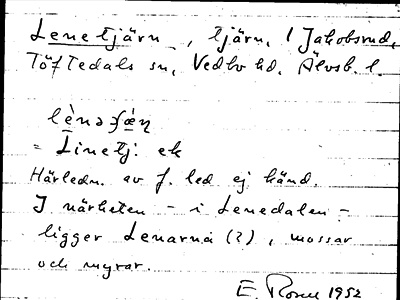 Lenetjärn, tjärn, i Jakobsrud,
Töftedals sn, Vedbo hd. Älvsb. l.
lènəʃæ̀ɳ
= Linetj. ek
Härledn. av f. led ej känd.
I närheten - i Lenedalen -
ligger Lenarna (?), mossar
och myrar.
E. 1952